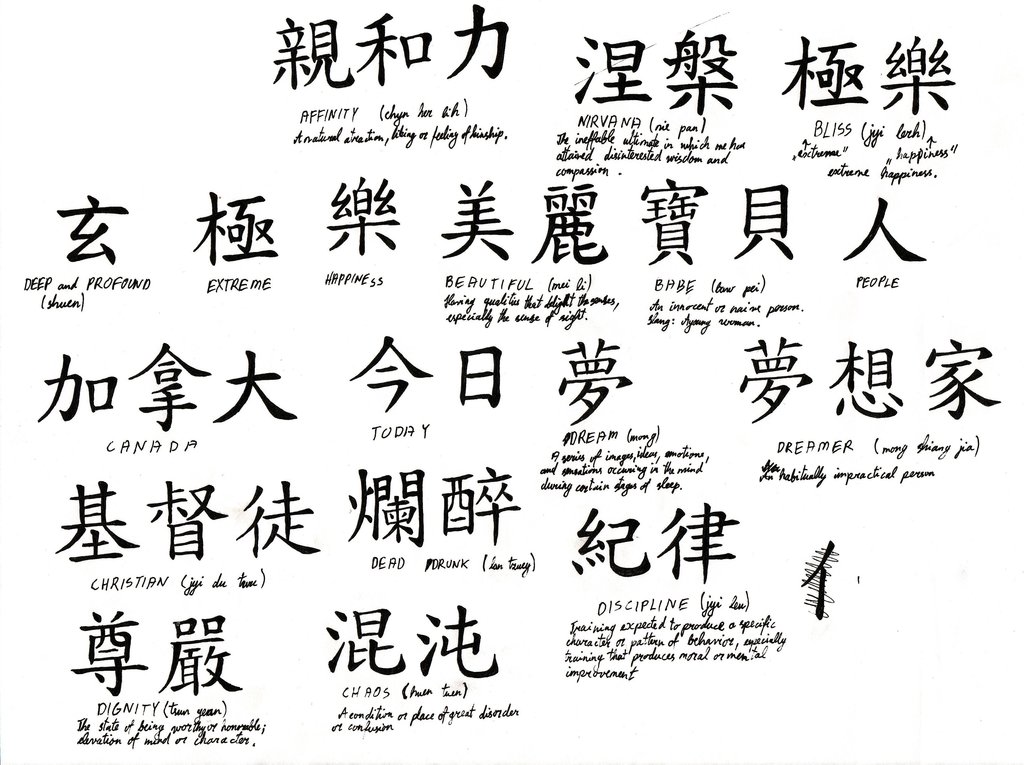 親和力
AFFINITY (chyn her lih)
A natural atraction, liking or feeling of kinship.
涅槃
NIRVANA (nie pan)
The ineffable ultimate in which one has
attained disinterested wisdom and
compassion.
極樂
BLISS (jyi lerh)
„extreme" „happiness"
extreme happiness.
玄
DEEP and PROFOUND
(shuen)
極
EXTREME
樂
HAPPINESS
美麗
BEAUTIFUL (mei li)
Having qualities that delight the senses,
especially the sense of sight.
寶貝
BABE (baw pei)
An innocent or naive person.
Slang: A young woman.
人
PEOPLE
加拿大
CANADA
今日
TODAY
夢
DREAM (mong)
A series of images, ideas, emotions,
and sensations occuring in the mind
during certain stages of sleep.
夢想家
DREAMER (mong shiang jia)
An habitually impractical person
基督徒
CHRISTIAN (jyi du twu)
爛醉
DEAD DRUNK (lan tzuey)
紀律
DISCIPLINE (jyi leu)
Training expected to produce a specific
character or pattern of behavior, especially
training that produces moral or mental
improvement
尊嚴
DIGNITY (tzun yean)
The state of being worthy or honorable;
elevation of mind or character.
混沌
CHAOS (huen tuen)
A condition or place of great disorder
or confusion